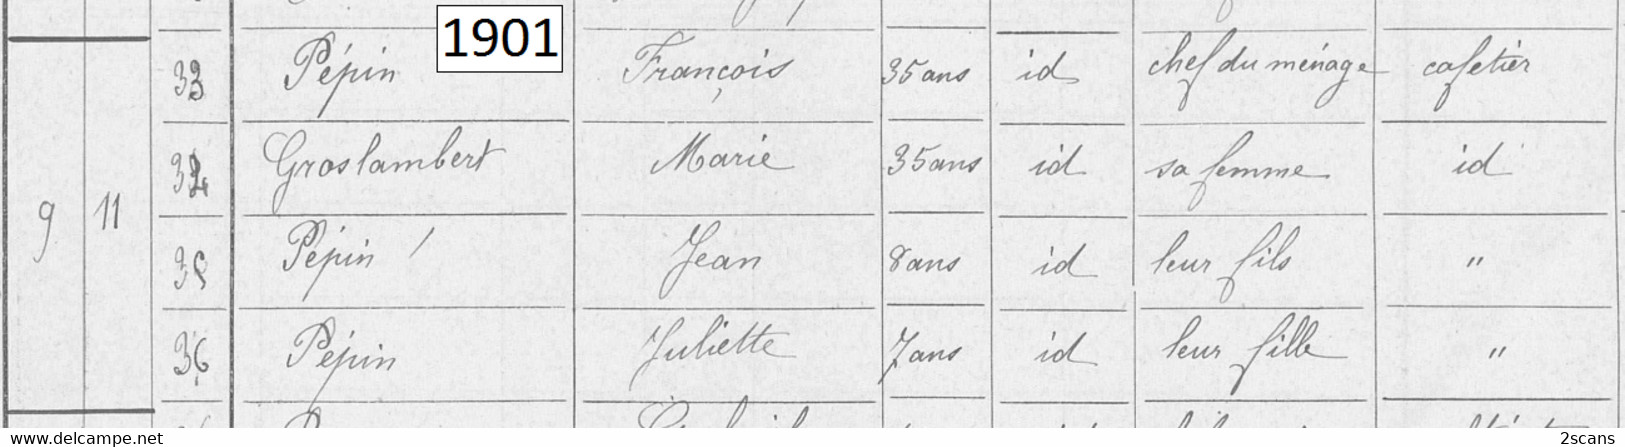 1901
33 Pépin François 35 ans id chef du ménage cafetier
34 Groslambert Marie 35 ans id sa femme id
9 11
35 Pépin Jean 8 ans id leur fils "
36 Pépin Juliette 7 ans id leur fille "
www.delcampe.net 2scans